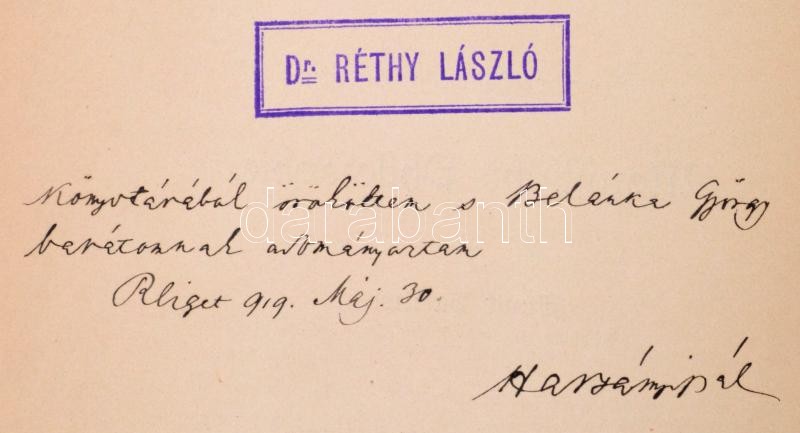 Dr. RÉTHY LÁSZLÓ
Könyvtárából örököltem s Belánka György
barátomnak adományoztam
Rliget 919. Máj. 30.
Harsányi Pál
darabanth